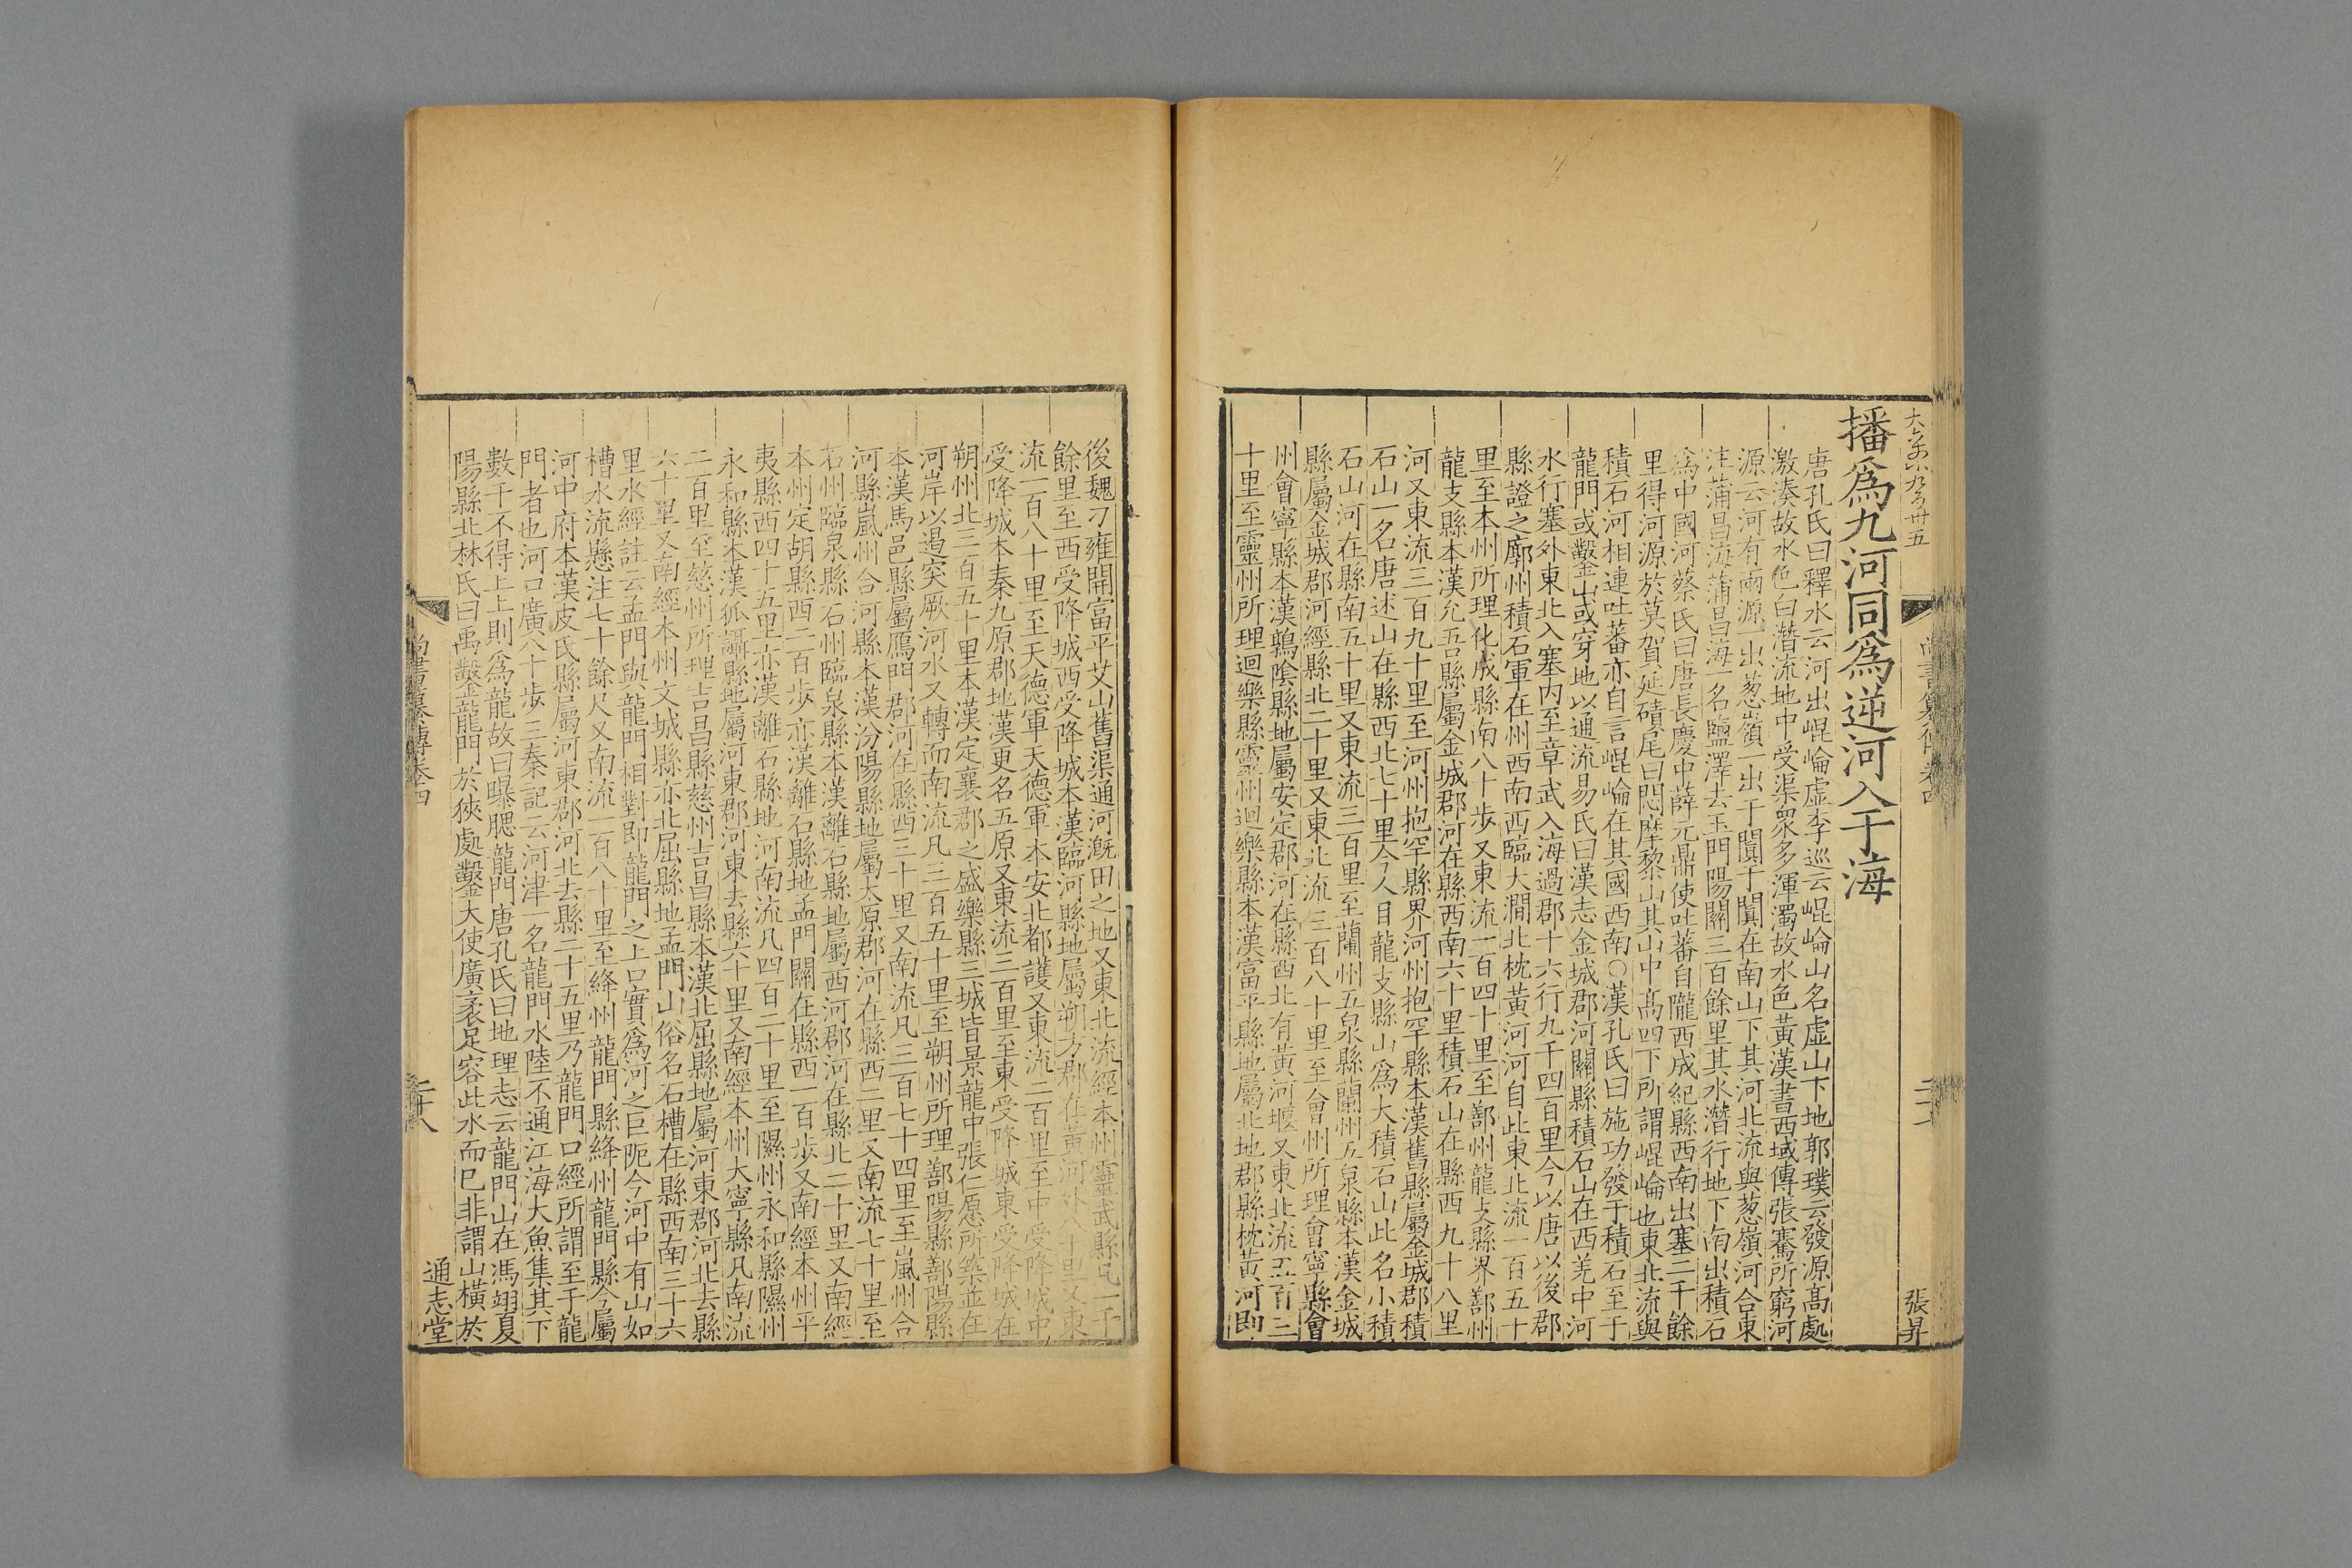 播爲九河同爲逆河入于海
唐孔氏曰釋水云河出崐崘虛李巡云崐崘山名虛山下地郭璞云發源髙處
激湊故水色白潛流地中受渠衆多渾濁故水色黃漢書西域傳張騫所窮河
源云河有兩源一出葱嶺一出于闐于闐在南山下其河北流與葱嶺河合東
注蒲昌海蒲昌海一名鹽澤去玉門陽關三百餘里其水潛行地下南出積石
爲中國河蔡氏曰唐長慶中薛元鼎使吐蕃自隴西成紀縣西南出塞二千餘
里得河源於莫賀延磧尾曰悶摩黎山其山中髙四下所謂崐崘也東北流與
積石河相連吐蕃亦自言崐崘在其國西南○漢孔氏曰施功發于積石至于
龍門或鑿山或穿地以通流易氏曰漢志金城郡河關縣積石山在西羌中河
水行塞外東北入塞内至章武入海過郡十六行九千四百里今以唐以後郡
縣證之廓州積石軍在州西南西臨大澗北枕黃河河自此東北流一百五十
里至本州所理化成縣南八十步又東流一百四十里至鄯州龍支縣界鄯州
龍支縣本漢允吾縣屬金城郡河在縣西南六十里積石山在縣西九十八里
河又東流三百九十里至河州抱罕縣界河州抱罕縣本漢舊縣屬金城郡積
石山一名唐述山在縣西北七十里今人目龍支縣山爲大積石山此名小積
石山河在縣南五十里又東流三百里至蘭州五泉縣蘭州五泉縣本漢金城
縣屬金城郡河經縣北二十里又東北流三百八十里至會州所理會寧縣會
州會寧縣本漢鶉陰縣地屬安定郡河在縣西北有黃河堰又東北流五百三
十里至靈州所理迴樂縣靈州迴樂縣本漢富平縣地屬北地郡縣枕黃河即
張昇
後魏刁雍開富平艾山舊渠通河漑田之地又東北流經本州靈武縣凡一千
餘里至西受降城西受降城本漢臨河縣地屬朔方郡在黃河外八十里又東
流一百八十里至天德軍天德軍本安北都護又東流二百里至中受降城中
受降城本秦九原郡地漢更名五原又東流三百里至東受降城東受降城在
朔州北三百五十里本漢定襄郡之盛樂縣三城皆景龍中張仁愿所築並在
河岸以遏突厥河水又轉而南流凡三百五十里至朔州所理鄯陽縣鄯陽縣
本漢馬邑縣屬鴈門郡河在縣西三十里又南流凡三百七十四里至嵐州合
河縣嵐州合河縣本漢汾陽縣地屬太原郡河在縣西二里又南流七十里至
石州臨泉縣石州臨泉縣本漢離石縣地屬西河郡河在縣北二十里又南經
本州定胡縣西二百步亦漢離石縣地孟門關在縣西一百步又南經本州平
夷縣西四十五里亦漢離石縣地河南流凡四百二十里至隰州永和縣隰州
永和縣本漢狐讘縣地屬河東郡河東去縣六十里又南經本州大寧縣凡南流
二百里至慈州所理吉昌縣慈州吉昌縣本漢北屈縣地屬河東郡河北去縣
六十里又南經本州文城縣亦北屈縣地孟門山俗名石槽在縣西南三十六
里水經註云孟門與龍門相對即龍門之上口實爲河之巨阨今河中有山如
槽水流懸注七十餘尺又南流一百八十里至絳州龍門縣絳州龍門縣今屬
河中府本漢皮氏縣屬河東郡河北去縣二十五里乃龍門口經所謂至于龍
門者也河口廣八十步三秦記云河津一名龍門水陸不通江海大魚集其下
數千不得上上則爲龍故曰曝腮龍門唐孔氏曰地理志云龍門山在馮翊夏
陽縣北林氏曰禹鑿龍門於狹處鑿大使廣袤足容此水而已非謂山橫於
尚書纂傳卷四
二十八
通志堂